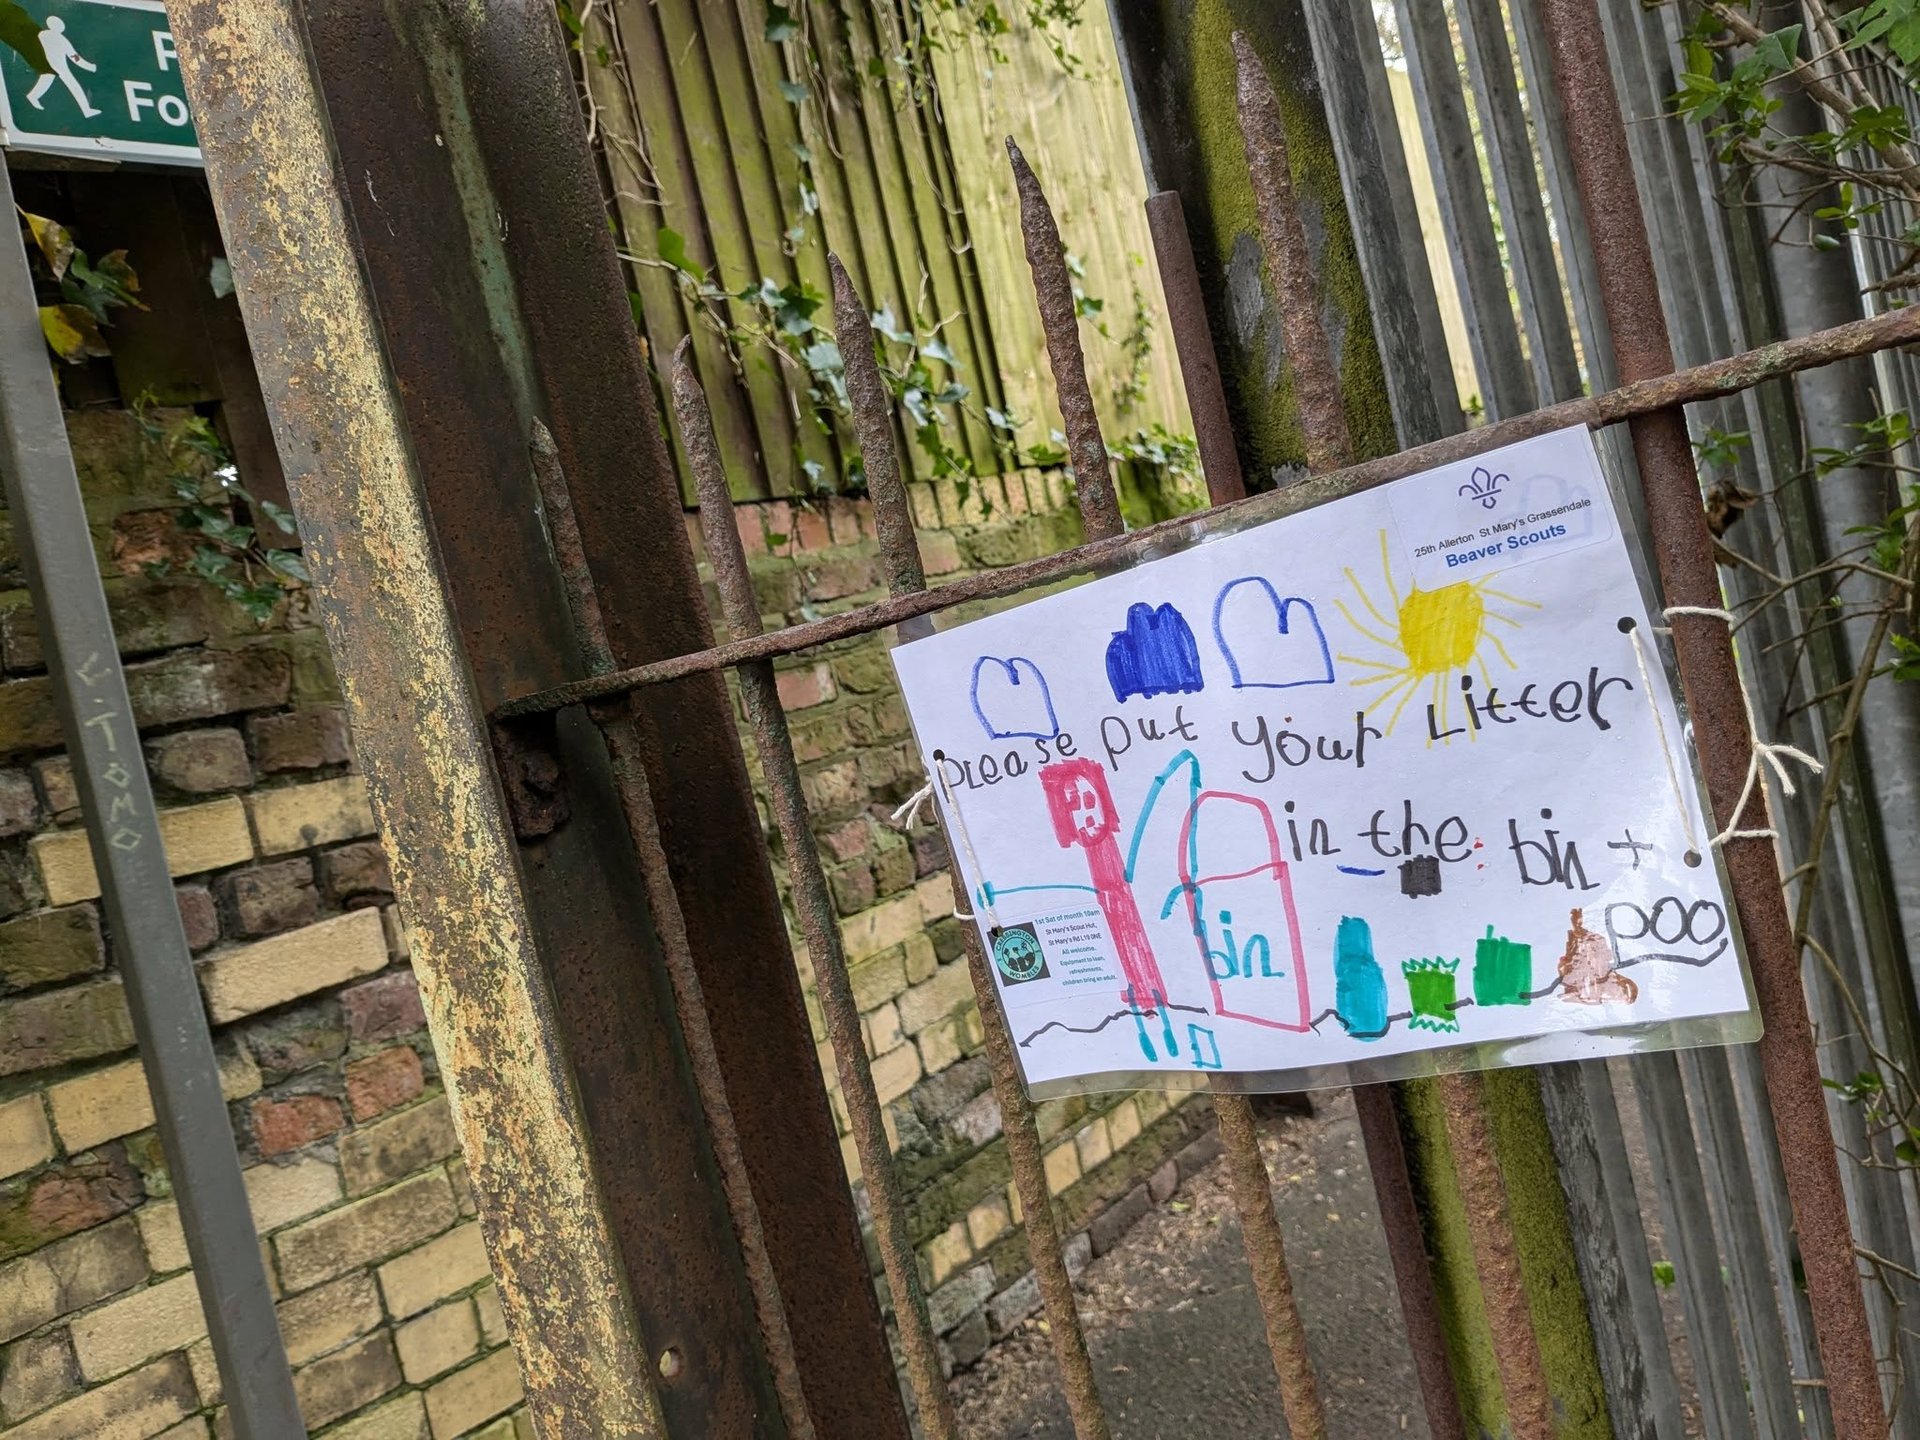 Fo
L·TOMO
25th Allerton St Mary's Grassendale
Beaver Scouts
please put your Litter
in the bin +
poo
bin
1st Sat of month 10am
St Mary's Scout Hut,
St Mary's Rd L19 0NE
All welcome.
Equipment to loan,
refreshments,
children bring an adult.
CRESSINGTON
WOMBLES